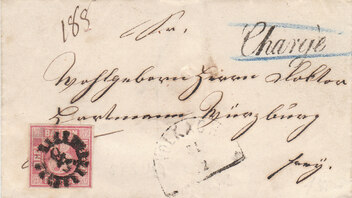 188
Sr.
Chargé
Wohlgebern Herrn Doktor
Hartmann Würzburg
frey.